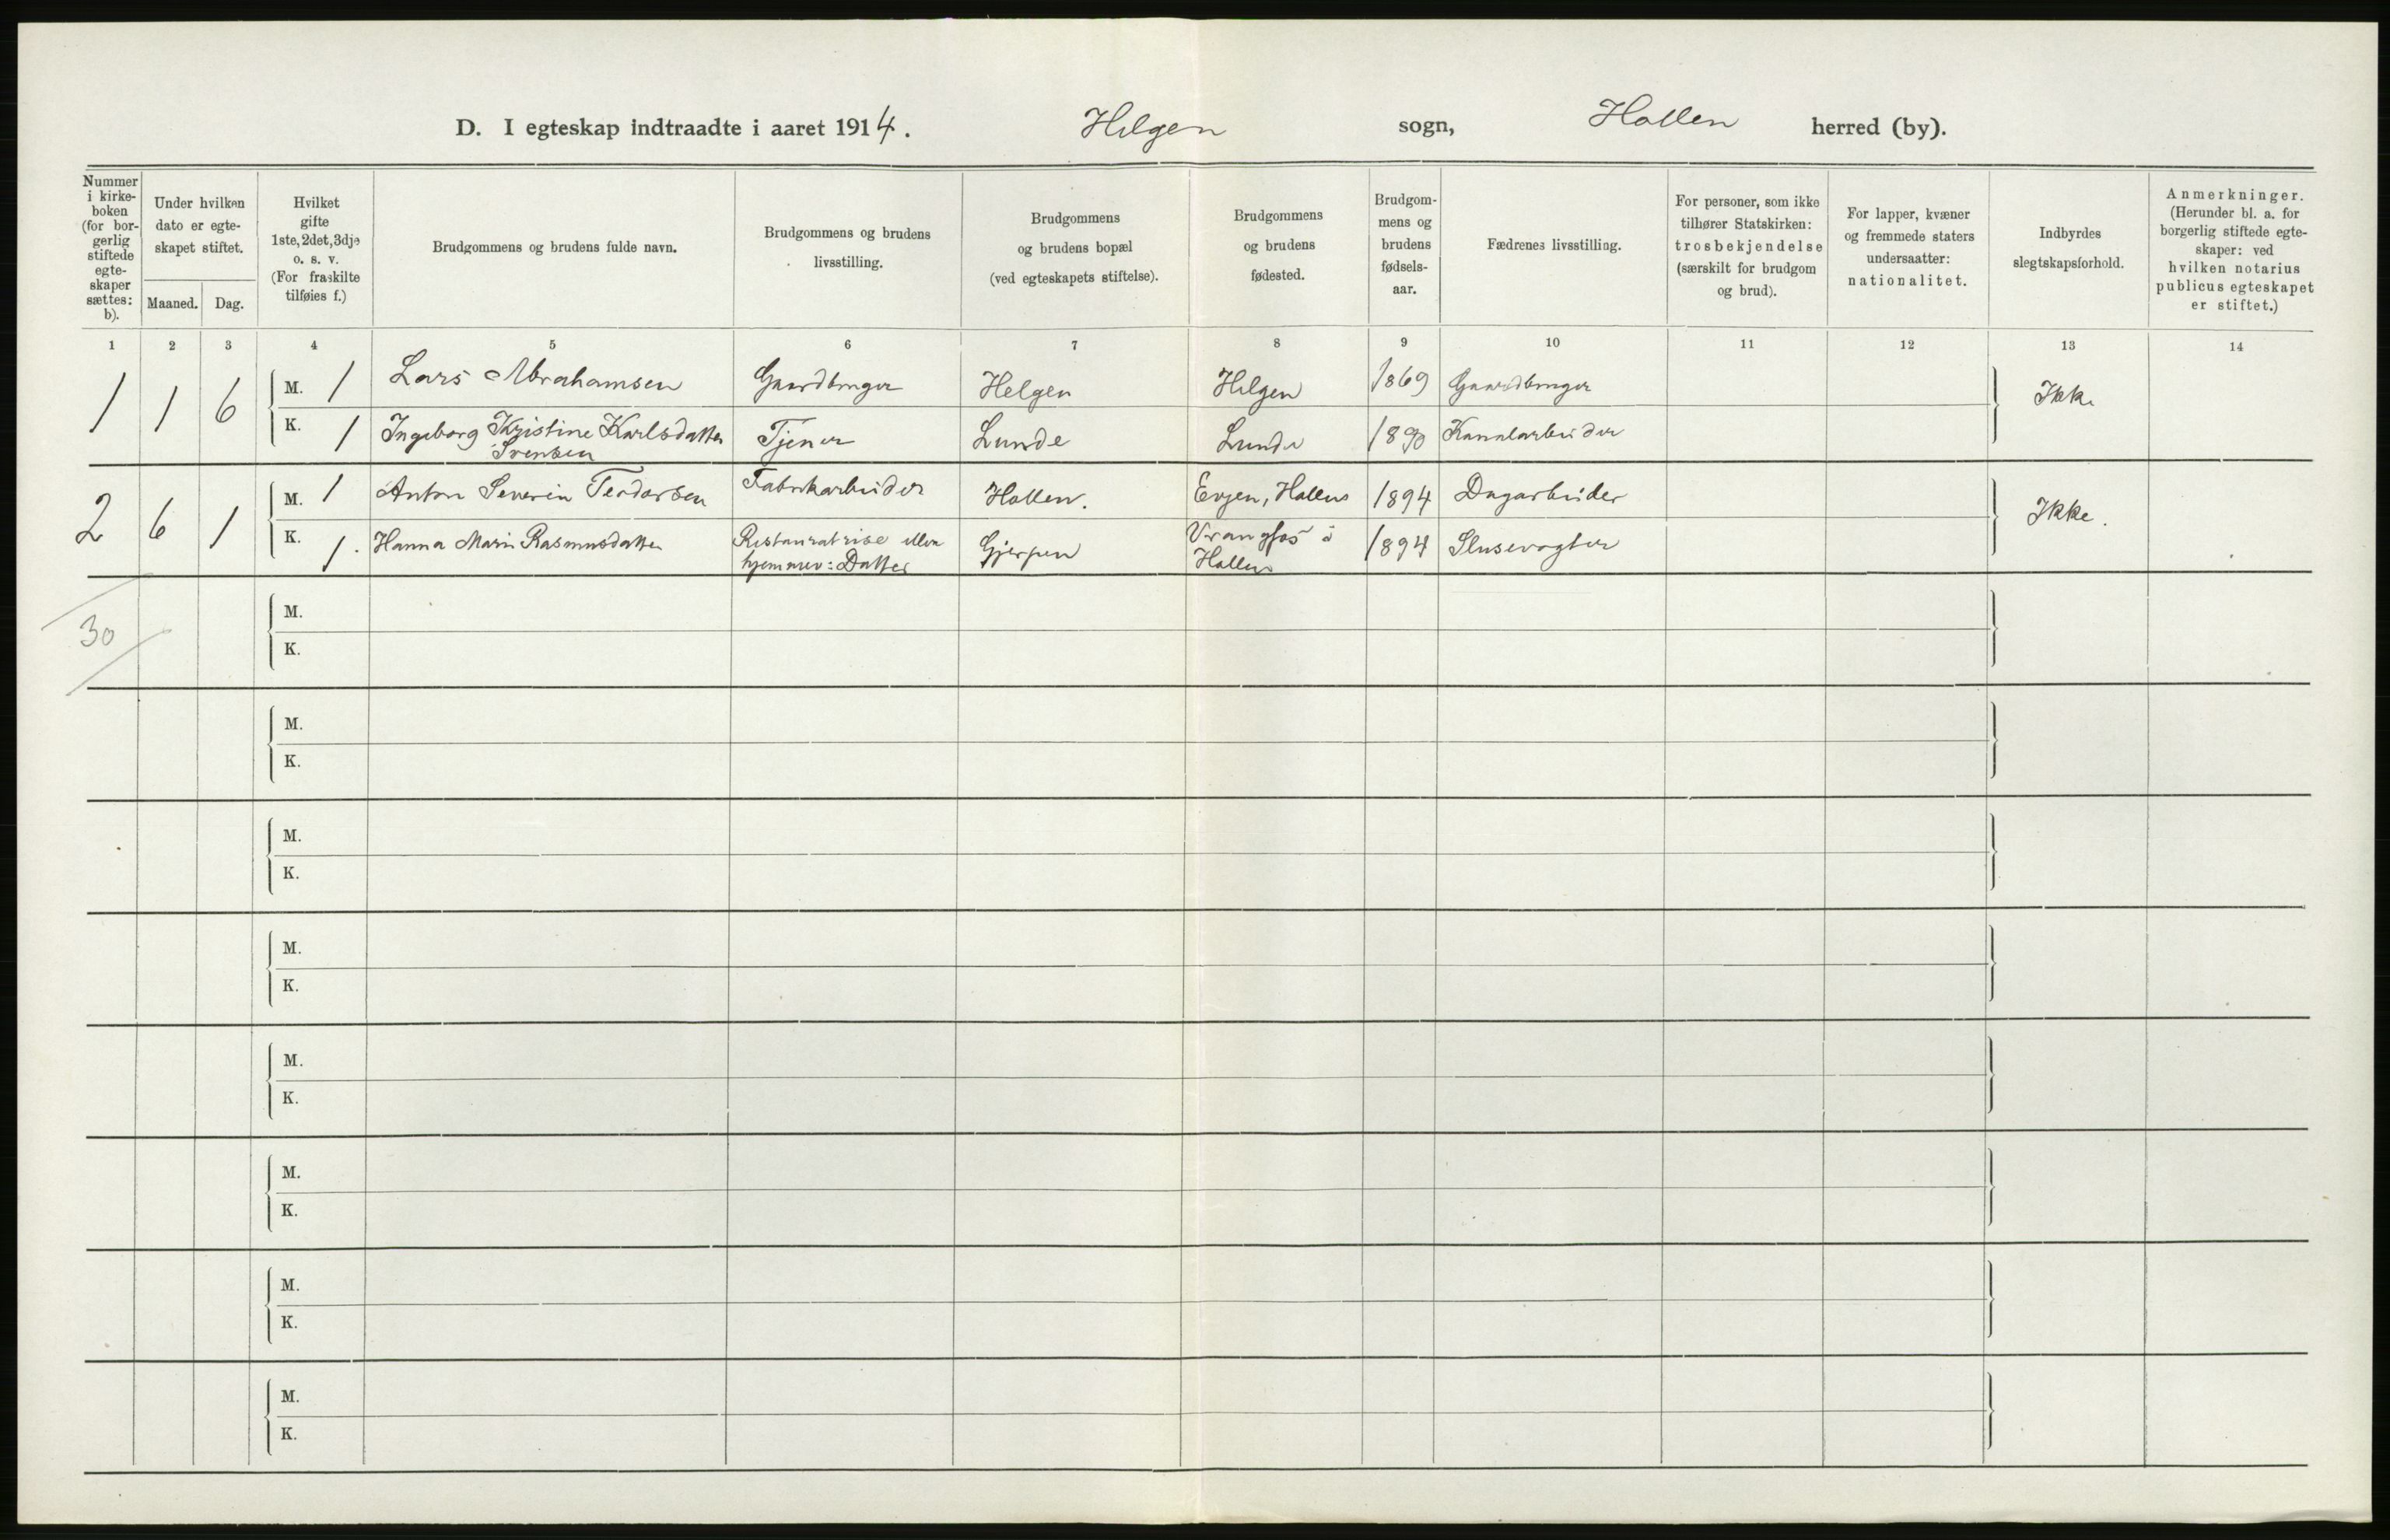 D. I egteskap indtraadte i aaret 1914. Helgen sogn, Hollen herred (by).
Nummer i kirkeboken (for borgerlig stiftede egteskaper sættes: b).
Under hvilken dato er egteskapet stiftet.
Maaned. Dag.
Hvilket gifte 1ste, 2det, 3dje o. s. v. (For fraskilte tilføies f.)
Brudgommens og brudens fulde navn.
Brudgommens og brudens livsstilling.
Brudgommens og brudens bopæl (ved egteskapets stiftelse).
Brudgommens og brudens fødested.
Brudgommens og brudens fødselsaar.
Fædrenes livsstilling.
For personer, som ikke tilhører Statskirken: trosbekjendelse (særskilt for brudgom og brud).
For lapper, kvæner og fremmede staters undersaatter: nationalitet.
Indbyrdes slegtskapsforhold.
Anmerkninger. (Herunder bl. a. for borgerlig stiftede egteskaper: ved hvilken notarius publicus egteskapet er stiftet.)
1 2 3 4 5 6 7 8 9 10 11 12 13 14
1 1 6 M. 1 Lars Abrahamsen Gaardbruger Helgen Helgen 1869 Gaardbruger Ikke
K. 1 Ingeborg Kristine Karlsdatter Tjener Lunde Lunde 1890 Kanalarbeider
Svensen
2 6 1 M. 1 Anton Severin Teodorsen Fabrikarbeider Hollen. Evjen, Hollen 1894 Dagarbeider Ikke.
K. 1. Hanna Marie Rasmusdatter Restauratrise eller Gjerpen Vrangfos i 1894 Slusevogter
hjemmev: Datter Hollen
30
M.
K.
M.
K.
M.
K.
M.
K.
M.
K.
M.
K.
M.
K.
M.
K.